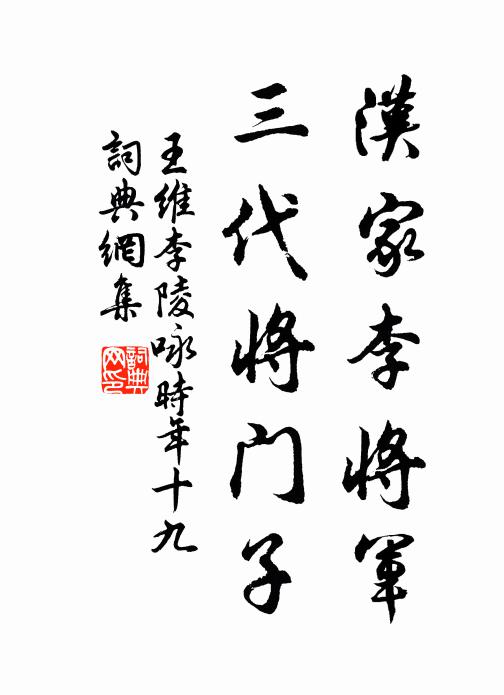 漢家李將軍
三代將门子
王維李陵咏時年十九
詞典網集
詞典
网印